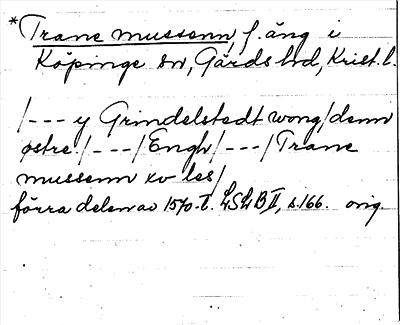 *Trane mussenn, f. äng i
Köpinge sn, Gärds hd, Krist. l.
/--- y Grindelstedt wong/denn
østre./---/Engh/---/Trane
mussenn xv les/
förra delen av 1570-t. LSLB II, s.166. orig.